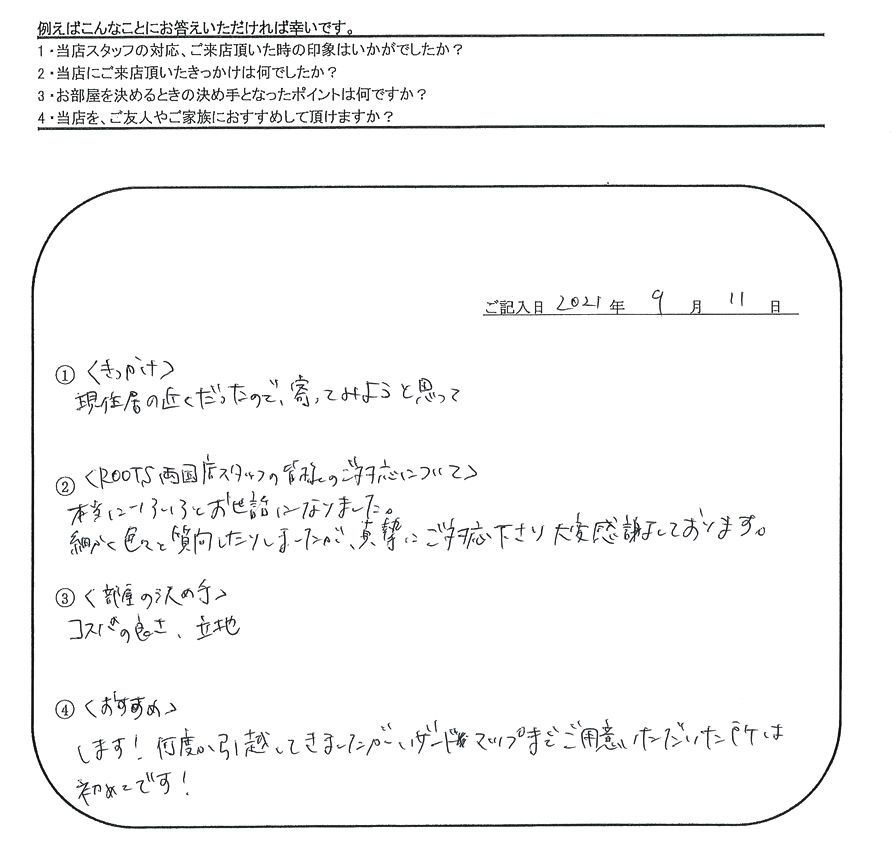 例えばこんなことにお答えいただければ幸いです。
1・当店スタッフの対応、ご来店頂いた時の印象はいかがでしたか？
2・当店にご来店頂いたきっかけは何でしたか？
3・お部屋を決めるときの決め手となったポイントは何ですか？
4・当店を、ご友人やご家族におすすめして頂けますか？
ご記入日 2021 年 9 月 11 日
① <きっかけ>
現住居の近くだったので、寄ってみようと思って
② <ROOTS両国店スタッフの皆様のご対応について>
本当にいろいろとお世話になりました。
細かく色々と質問したりしましたが、真摯にご対応下さり大変感謝しております。
③ <部屋の決め手>
コスパの良さ、立地
④ <おすすめ>
します！何度か引越してきましたがハザードマップまでご用意いただいた所は
初めてです！